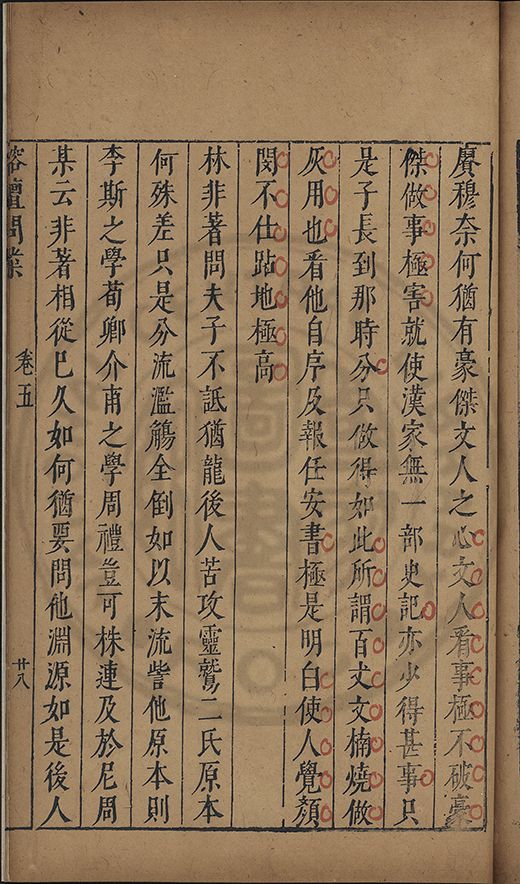 賡穆奈何猶有豪傑文人之心文人看事極不破豪
傑做事極害就使漢家無一部史記亦少得甚事只
是子長到那時分只做得如此所謂百丈文楠燒做
灰用也看他自序及報任安書極是明白使人覺顏
閔不仕跕地極高
林非著問夫子不詆猶龍後人苦攻靈鷲二氏原本
何殊差只是分流濫觴全倒如以末流訾他原本則
李斯之學荀卿介甫之學周禮豈可株連及於尼周
某云非著相從已久如何猶要問他淵源如是後人
榕壇問業 卷五 廿八